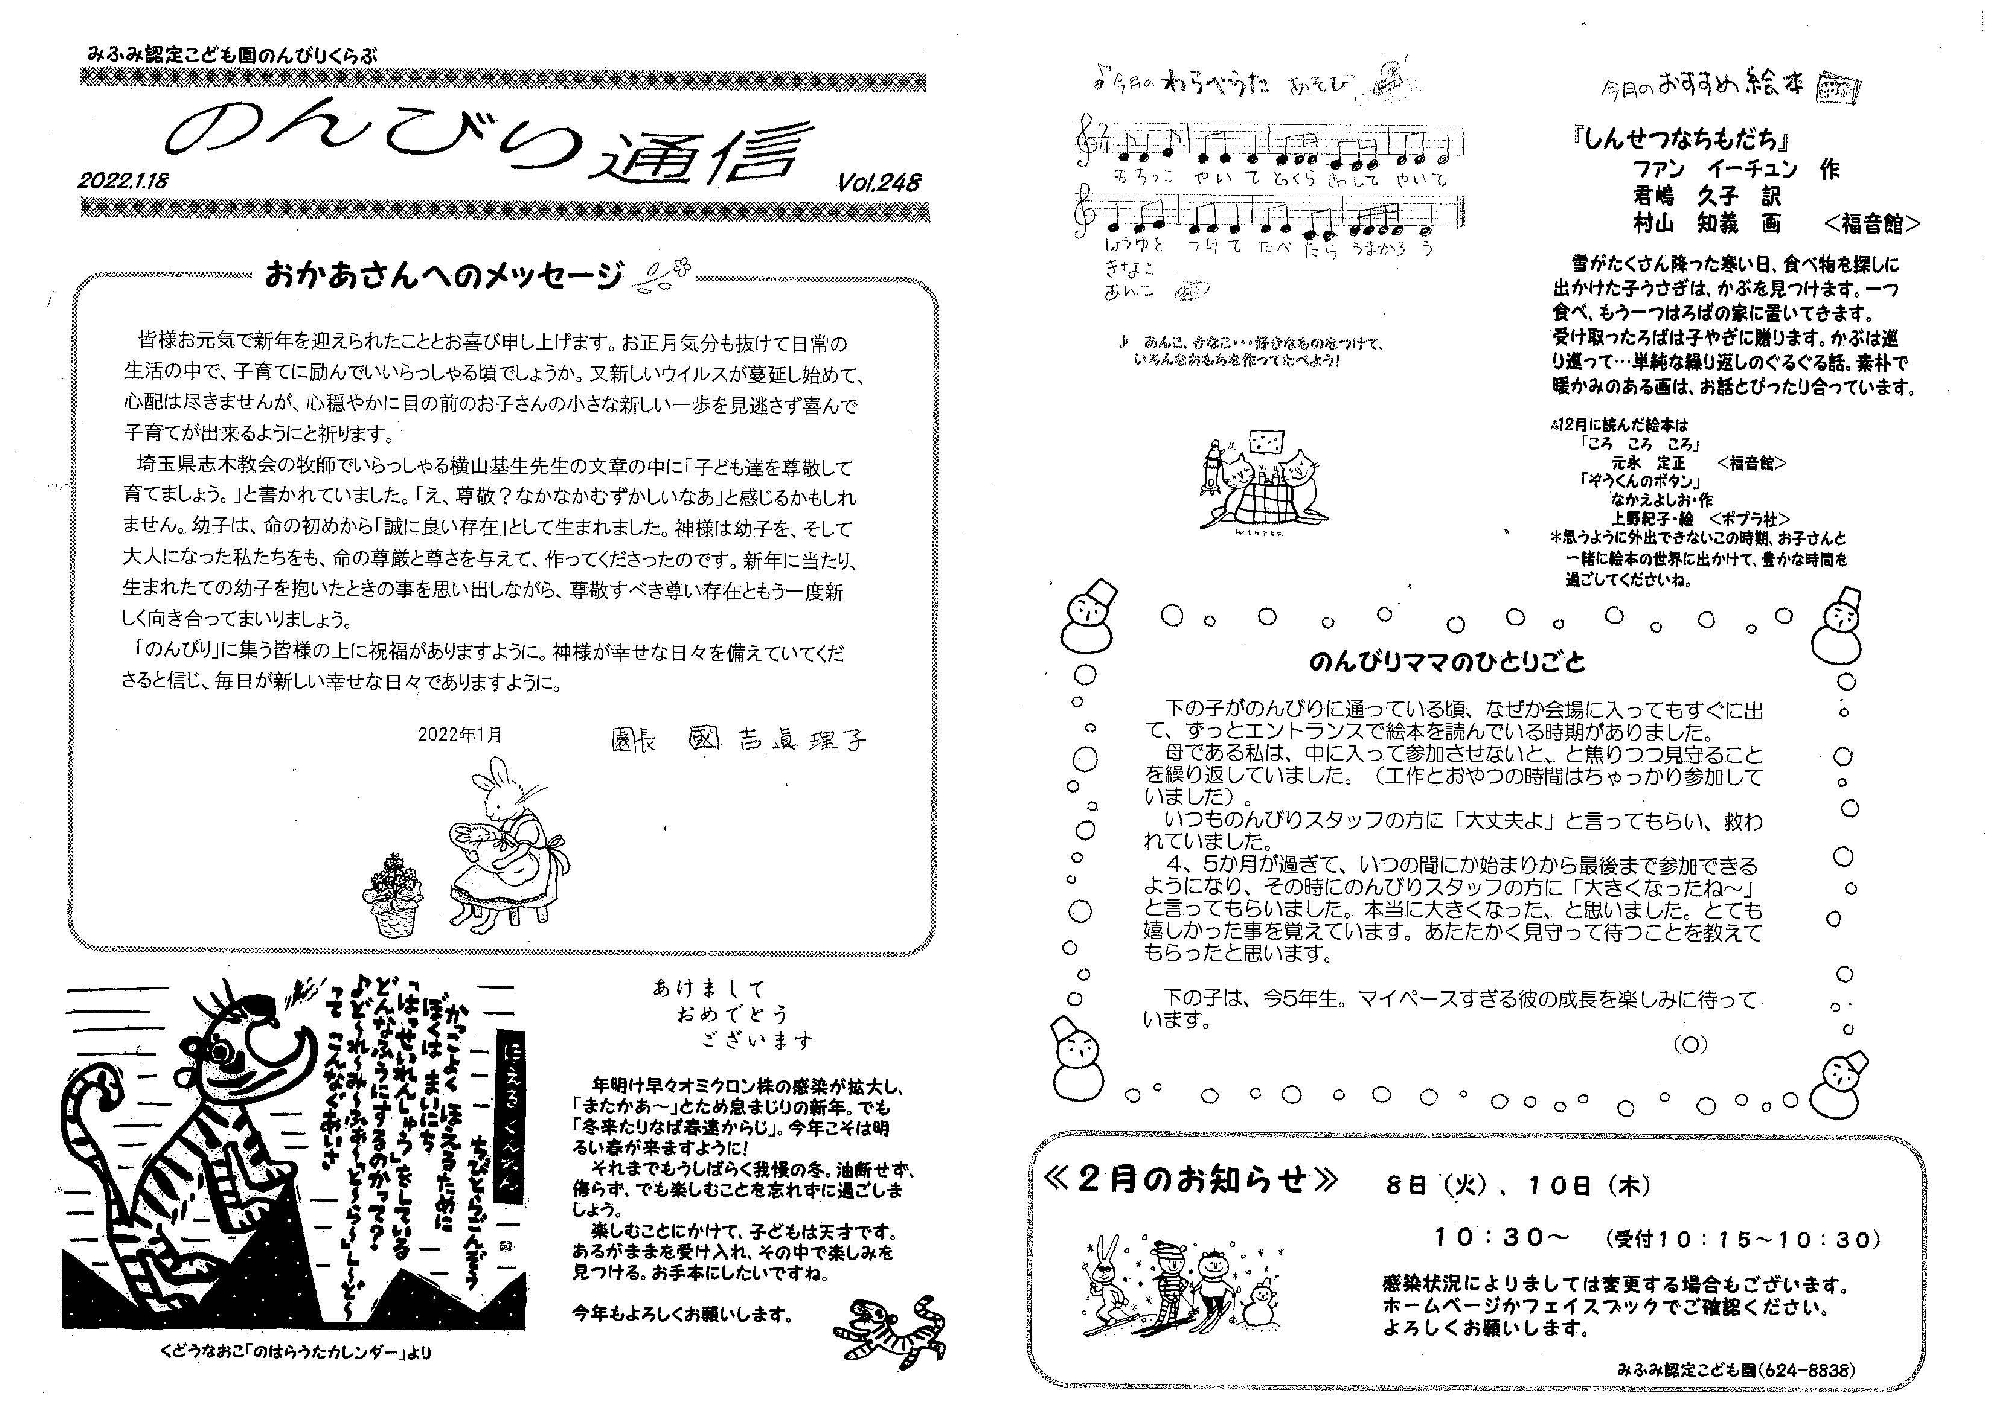 みふみ認定こども園のんびりくらぶ
のんびり通信
2022.1.18
Vol.248
おかあさんへのメッセージ
皆様お元気で新年を迎えられたこととお喜び申し上げます。お正月気分も抜けて日常の
生活の中で、子育てに励んでいいらっしゃる頃でしょうか。又新しいウイルスが蔓延し始めて、
心配は尽きませんが、心穏やかに目の前のお子さんの小さな新しい一歩を見逃さず喜んで
子育てが出来るようにと祈ります。
埼玉県志木教会の牧師でいらっしゃる横山基生先生の文章の中に「子ども達を尊敬して
育てましょう。」と書かれていました。「え、尊敬？なかなかむずかしいなあ」と感じるかもしれ
ません。幼子は、命の初めから「誠に良い存在」として生まれました。神様は幼子を、そして
大人になった私たちをも、命の尊厳と尊さを与えて、作ってくださったのです。新年に当たり、
生まれたての幼子を抱いたときの事を思い出しながら、尊敬すべき尊い存在ともう一度新
しく向き合ってまいりましょう。
「のんびり」に集う皆様の上に祝福がありますように。神様が幸せな日々を備えていてくだ
さると信じ、毎日が新しい幸せな日々でありますように。
2022年1月
園長 國吉眞理子
にえるくんれん
ちびとらごんぞう
かっこよく ほえるために
ぼくは まいにち
「はっせいれんしゅう」をしている
どんなふうにするのかって？
♪ど〜れ〜み〜ふぁ〜ど〜ら〜し〜ど〜
って こんなぐあいさ
くどうなおこ「のはらうたカレンダー」より
あけまして
おめでとう
ございます
年明け早々オミクロン株の感染が拡大し、
「またかあ～」とため息まじりの新年。でも
「冬来たりなば春遠からじ」。今年こそは明
るい春が来ますように！
それまでもうしばらく我慢の冬。油断せず、
侮らず、でも楽しむことを忘れずに過ごしま
しょう。
楽しむことにかけて、子どもは天才です。
あるがままを受け入れ、その中で楽しみを
見つける。お手本にしたいですね。
今年もよろしくお願いします。
♪今月の わらべうた あそび
もちっこ やいて とっくら かえして やいて
しょうゆを つけて たべたら うまかろう
きなこ
あんこ
♪ あんこ、きなこ…好きなものをつけて、
いろんなおもちを作ってたべよう！
WINTER
今月のおすすめ絵本
『しんせつなちもだち』
ファン イーチュン 作
君嶋 久子 訳
村山 知義 画 ＜福音館＞
雪がたくさん降った寒い日、食べ物を探しに
出かけた子うさぎは、かぶを見つけます。一つ
食べ、もう一つはろばの家に置いてきます。
受け取ったろばは子やぎに贈ります。かぶは巡
り巡って…単純な繰り返しのぐるぐる話。素朴で
暖かみのある画は、お話とぴったり合っています。
12月に読んだ絵本は
「ころ ころ ころ」
元永 定正 ＜福音館＞
「ぞうくんのボタン」
なかえよしお・作
上野紀子・絵 ＜ポプラ社＞
＊思うように外出できないこの時期、お子さんと
一緒に絵本の世界に出かけて、豊かな時間を
過ごしてくださいね。
のんびりママのひとりごと
下の子がのんびりに通っている頃、なぜか会場に入ってもすぐに出
て、ずっとエントランスで絵本を読んでいる時期がありました。
母である私は、中に入って参加させないと、と焦りつつ見守ること
を繰り返していました。（工作とおやつの時間はちゃっかり参加して
いました）。
いつものんびりスタッフの方に「大丈夫よ」と言ってもらい、救わ
れていました。
4、5か月が過ぎて、いつの間にか始まりから最後まで参加できる
ようになり、その時にのんびりスタッフの方に「大きくなったね～」
と言ってもらいました。本当に大きくなった、と思いました。とても
嬉しかった事を覚えています。あたたかく見守って待つことを教えて
もらったと思います。
下の子は、今5年生。マイペースすぎる彼の成長を楽しみに待って
います。
（O）
≪２月のお知らせ≫ ８日（火）、１０日（木）
１０：３０～ （受付１０：１５～１０：３０）
感染状況によりましては変更する場合もございます。
ホームページかフェイスブックでご確認ください。
よろしくお願いします。
みふみ認定こども園(624-8838)